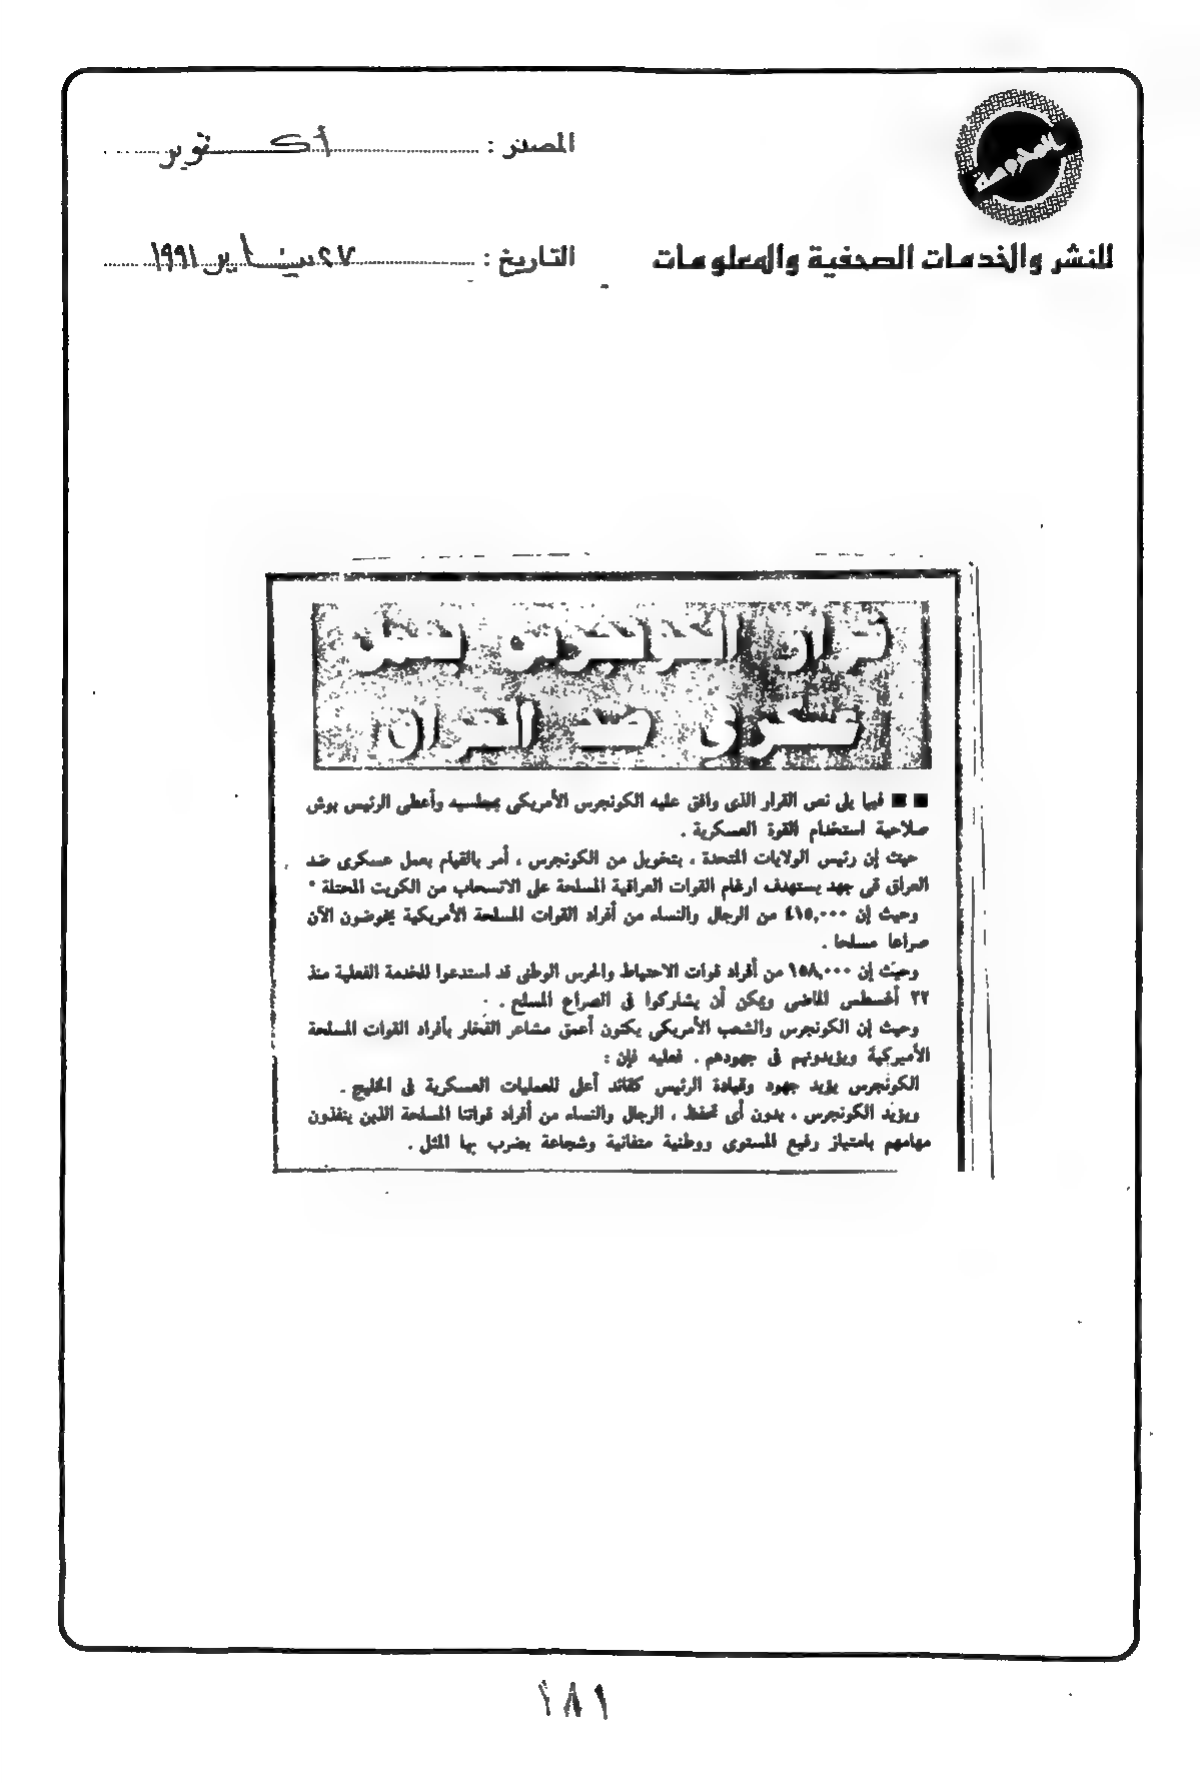 المصدر : أكتوبر
للنشر والخدمات الصحفية والمعلومات
التاريخ : ٢٧ يناير ١٩٩١
قرار الكونجرس بعمل
عسكرى ضد العراق
■ ■ فيما يلى نص القرار الذى وافق عليه الكونجرس الأمريكى بمجلسيه وأعطى الرئيس بوش
صلاحية استخدام القوة العسكرية .
حيث إن رئيس الولايات المتحدة ، بتخويل من الكونجرس ، أمر بالقيام بعمل عسكرى ضد
العراق فى جهد يستهدف ارغام القوات العراقية المسلحة على الانسحاب من الكويت المحتلة •
وحيث إن ٤١٥,٠٠٠ من الرجال والنساء من أفراد القوات المسلحة الأمريكية يخوضون الآن
صراعا مسلحا .
وحيث إن ١٥٨,٠٠٠ من أفراد قوات الاحتياط والحرس الوطنى قد استدعوا للخدمة الفعلية منذ
٢٢ أغسطس الماضى ويمكن أن يشاركوا فى الصراع المسلح .
وحيث إن الكونجرس والشعب الأمريكى يكنون أعمق مشاعر الفخار بأفراد القوات المسلحة
الأميركية ويؤيدونهم فى جهودهم . فعليه فإن :
الكونجرس يؤيد جهود وقيادة الرئيس كقائد أعلى للعمليات العسكرية فى الخليج .
ويؤيد الكونجرس ، بدون أى تحفظ ، الرجال والنساء من أفراد قواتنا المسلحة الذين ينفذون
مهامهم بامتياز رفيع المستوى ووطنية متفانية وشجاعة يضرب بها المثل .